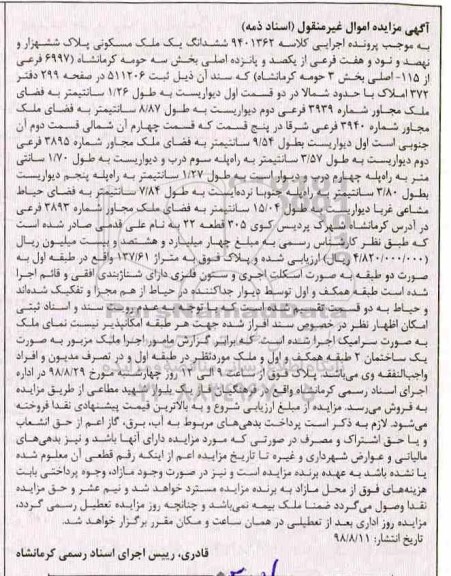 آگهی مزایده اموال غیرمنقول (اسناد ذمه)
به موجب پرونده اجرایی کلاسه ۹۴۰۱۳۶۲ ششدانگ یک ملک مسکونی پلاک ششهزار و
نهصد و نود و هفت فرعی از یکصد و پانزده اصلی بخش سه حومه کرمانشاه (۶۹۹۷ فرعی
از ۱۱۵- اصلی بخش ۳ حومه کرمانشاه) که سند آن ذیل ثبت ۵۱۱۲۰۶ در صفحه ۲۹۹ دفتر
۳۷۲ املاک با حدود شمالا در دو قسمت اول دیواریست به طول ۱/۲۶ سانتیمتر به فضای
ملک مجاور شماره ۳۹۳۹ فرعی دوم دیواریست به طول ۸/۸۷ سانتیمتر به فضای ملک
مجاور شماره ۳۹۴۰ فرعی شرقا در پنج قسمت که قسمت چهارم آن شمالی قسمت دوم آن
جنوبی است اول دیواریست بطول ۹/۵۴ سانتیمتر به فضای ملک مجاور شماره ۳۸۹۵ فرعی
دوم دیواریست به طول ۳/۵۷ سانتیمتر به راه‌پله سوم درب و دیواریست به طول ۱/۷۰ سانتی
متر به راه‌پله چهارم درب و دیوار است به طول ۱/۲۷ سانتیمتر به راه‌پله پنجم دیواریست
بطول ۳/۸۰ سانتیمتر به راه‌پله جنوبا نرده‌ایست به طول ۷/۸۴ سانتیمتر به فضای حیاط
مشاعی غربا دیواریست به طول ۱۵/۰۴ سانتیمتر به فضای ملک مجاور شماره ۳۸۹۳ فرعی
در آدرس کرمانشاه شهرک پردیس کوی ۳۰۵ قطعه ۲۲ به نام علی قدمی صادر شده است
که طبق نظر کارشناس رسمی به مبلغ چهار میلیارد و هشتصد و بیست میلیون ریال
(۴/۸۲۰/۰۰۰/۰۰۰ ریال) ارزیابی شده و پلاک فوق به متراژ ۱۳۷/۶۱ واقع در طبقه اول به
صورت دو طبقه به صورت اسکلت آجری و ستون فلزی دارای شناژبندی افقی و قائم اجرا
شده است طبقه همکف و اول توسط دیوار جداکننده در حیاط از هم مجزا و تفکیک شده‌اند
و حیاط به دو قسمت تقسیم شده است که با توجه به عدم رویت سند و اسناد ثبتی
امکان اظهار نظر در خصوص سند افراز شده جهت هر طبقه امکانپذیر نیست نمای ملک
به صورت سرامیک اجرا شده است. که برابر گزارش مامور اجرا ملک مزبور به صورت
یک ساختمان ۲ طبقه همکف و اول و ملک موردنظر در طبقه اول و در تصرف مدیون و افراد
واجب‌النفقه وی می‌باشد. پلاک فوق از ساعت ۹ الی ۱۲ روز چهارشنبه مورخ ۹۸/۸/۲۹ در اداره
اجرای اسناد رسمی کرمانشاه واقع در فرهنگیان فاز یک بلوار شهید مطاعی از طریق مزایده
به فروش می‌رسد. مزایده از مبلغ ارزیابی شروع و به بالاترین قیمت پیشنهادی نقدا فروخته
می‌شود. لازم به ذکر است پرداخت بدهی‌های مربوط به آب، برق، گاز اعم از حق انشعاب
و یا حق اشتراک و مصرف در صورتی که مورد مزایده دارای آنها باشد و نیز بدهی‌های
مالیاتی و عوارض شهرداری و غیره تا تاریخ مزایده اعم از اینکه رقم قطعی آن معلوم شده
یا نشده باشد به عهده برنده مزایده است و نیز در صورت وجود مازاد، وجوه پرداختی بابت
هزینه‌های فوق از محل مازاد به برنده مزایده مسترد خواهد شد و نیم عشر و حق مزایده
نقدا وصول می‌گردد ضمنا ملک بیمه نمی‌باشد و چنانچه روز مزایده تعطیل رسمی گردد،
مزایده روز اداری بعد از تعطیلی در همان ساعت و مکان مقرر برگزار خواهد شد.
تاریخ انتشار: ۹۸/۸/۱۱
قادری، رییس اجرای اسناد رسمی کرمانشاه